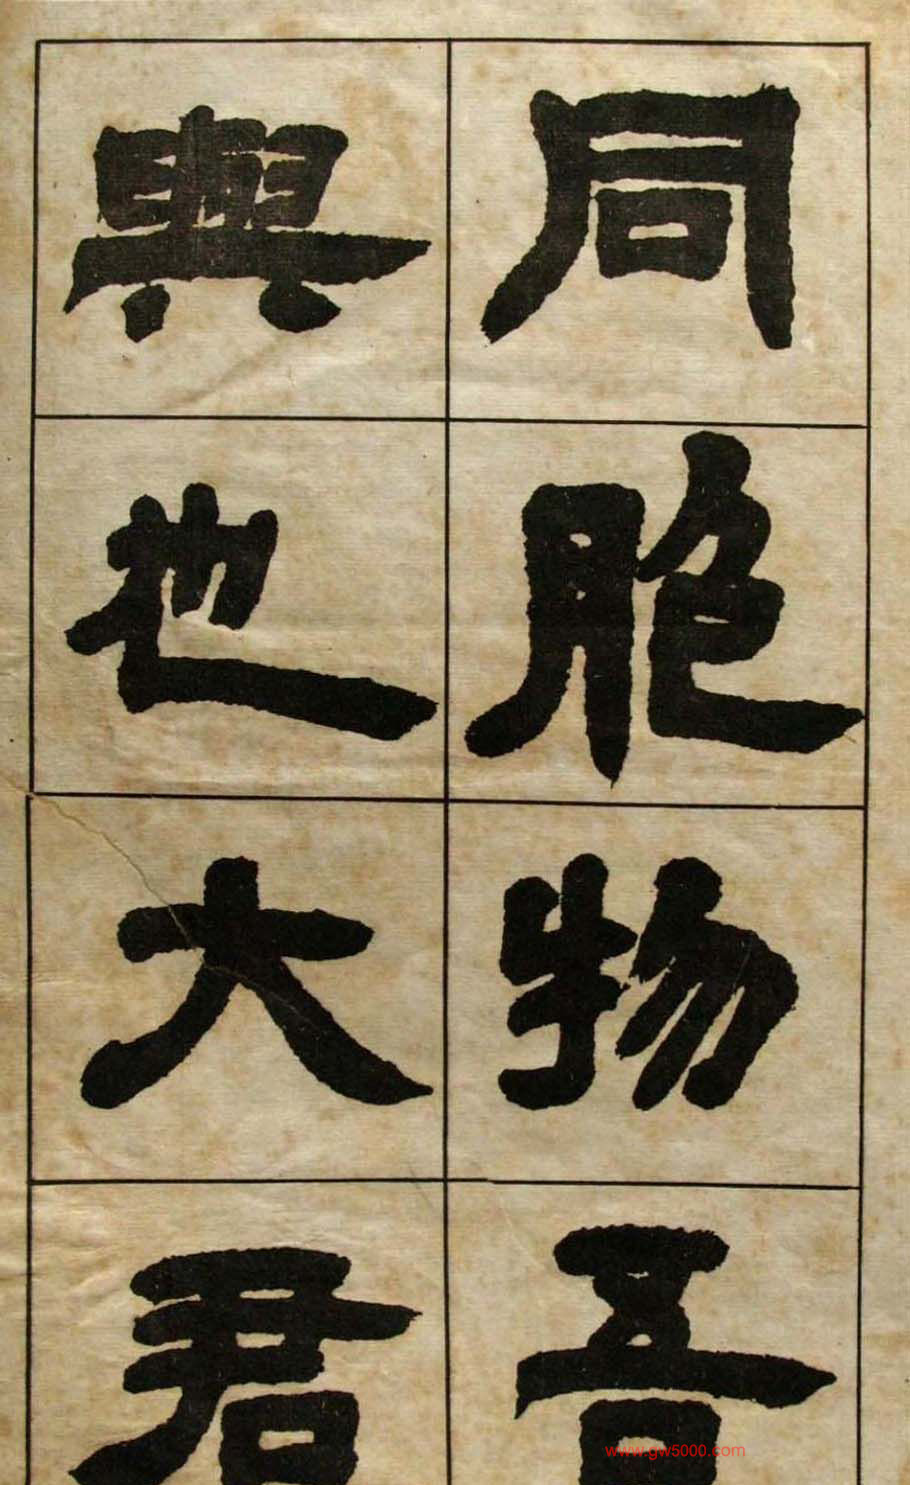 同胞物吾
與也大君
www.gw5000.com